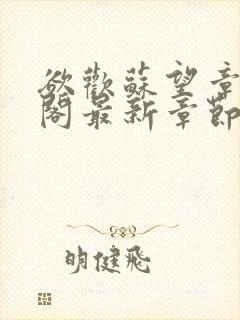 欲歡蘇望章
閣最新章節
明健飛